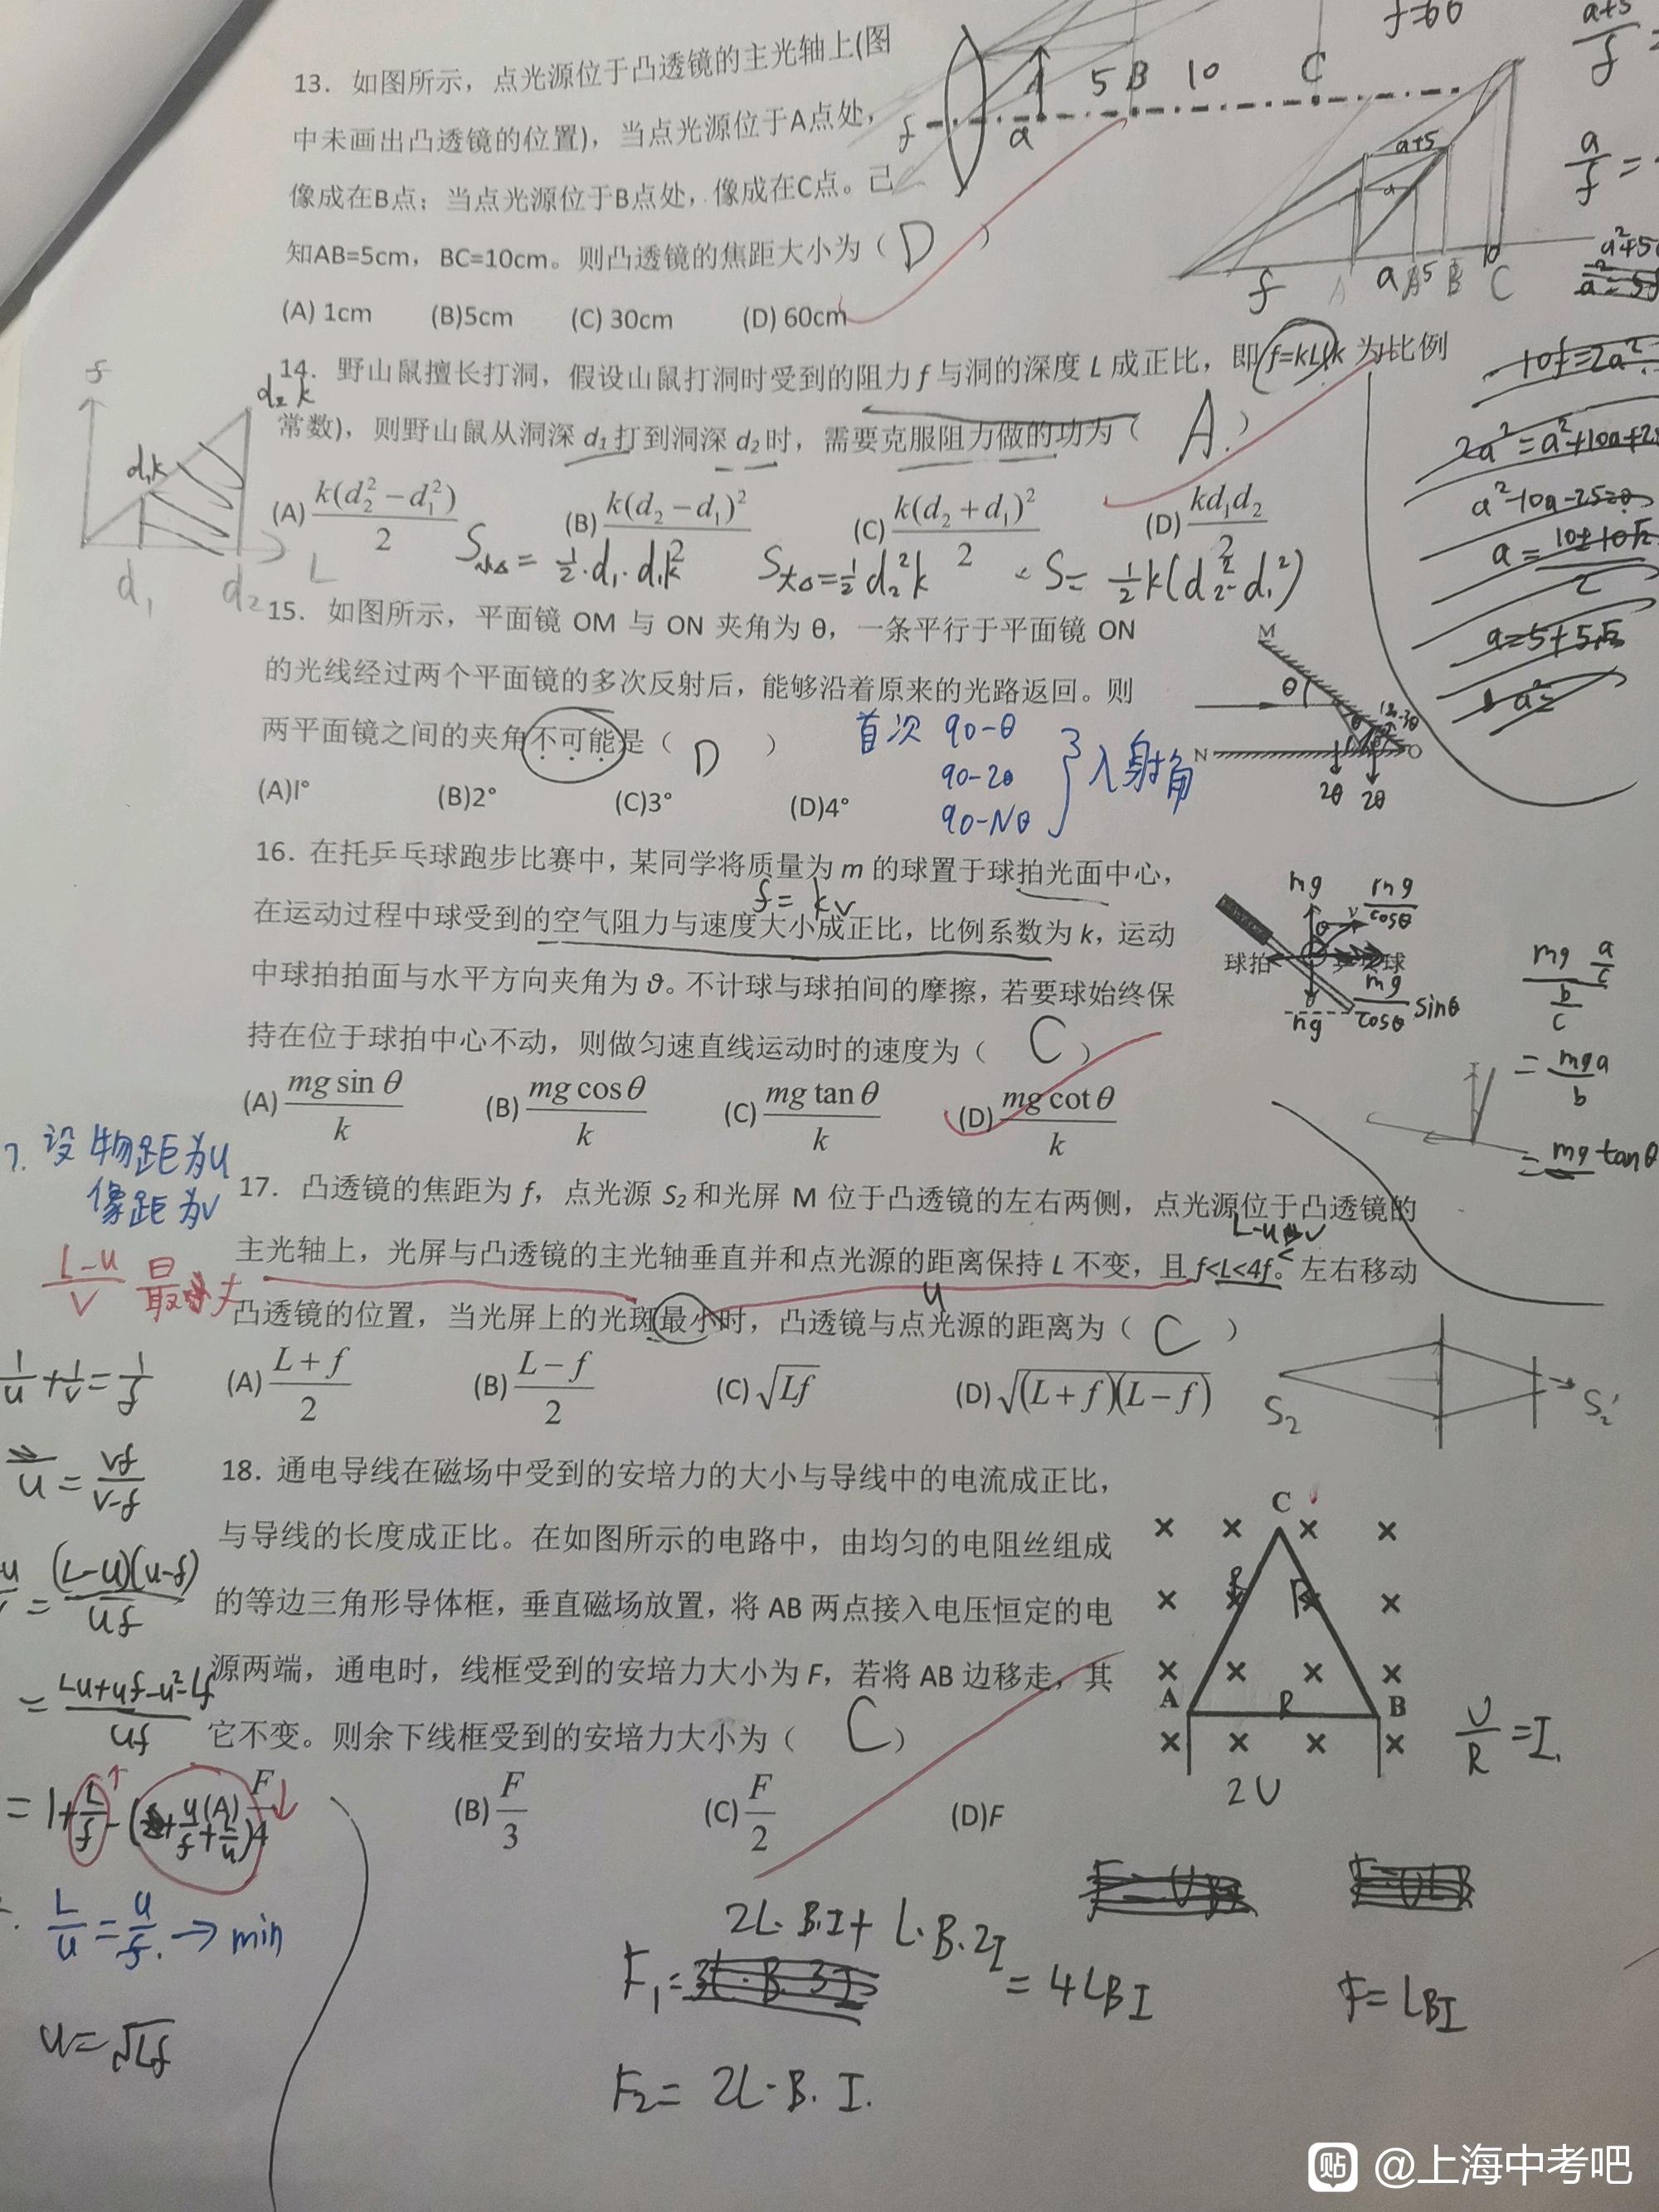 13. 如图所示，点光源位于凸透镜的主光轴上(图
中未画出凸透镜的位置)，当点光源位于A点处，
像成在B点；当点光源位于B点处，像成在C点。己
知AB=5cm，BC=10cm。则凸透镜的焦距大小为（ D ）
(A) 1cm (B)5cm (C) 30cm (D) 60cm
f=60
5 B 10 C
f a
a+5
a
f a A 5 B 10 C
14. 野山鼠擅长打洞，假设山鼠打洞时受到的阻力 f 与洞的深度 L 成正比，即 f=kL(k 为比例
常数)，则野山鼠从洞深 d₁ 打到洞深 d₂ 时，需要克服阻力做的功为（ A ）
(A) k(d₂²-d₁²)/2 (B) k(d₂-d₁)²/2 (C) k(d₂+d₁)²/2 (D) kd₁d₂/2
f
d₂k
d₁k
d₁ d₂ L
S小△= 1/2·d₁·d₁k S大△=1/2 d₂²k S= 1/2 k(d₂²-d₁²)
10f=2a²
2a²=a²+10a+2
a²-10a-25=0
a=5+5√2
15. 如图所示，平面镜 OM 与 ON 夹角为 θ，一条平行于平面镜 ON
的光线经过两个平面镜的多次反射后，能够沿着原来的光路返回。则
两平面镜之间的夹角不可能是（ D ）
(A)1° (B)2° (C)3° (D)4°
首次 90-θ
90-2θ
90-Nθ
入射角
M
θ
N O
2θ 2θ
16. 在托乒乓球跑步比赛中，某同学将质量为 m 的球置于球拍光面中心，
f= kv
在运动过程中球受到的空气阻力与速度大小成正比，比例系数为 k，运动
中球拍拍面与水平方向夹角为 ϑ。不计球与球拍间的摩擦，若要球始终保
持在位于球拍中心不动，则做匀速直线运动时的速度为（ C ）
(A) mg sin θ/k (B) mg cosθ/k (C) mg tan θ/k (D) mg cot θ/k
mg mg/cosθ
球拍 乒乓球
mg mg/cosθ sinθ
mg a/c
b/c
= mga/b
= mg tanθ
7. 设物距为u
像距为v
17. 凸透镜的焦距为 f，点光源 S₂ 和光屏 M 位于凸透镜的左右两侧，点光源位于凸透镜的
主光轴上，光屏与凸透镜的主光轴垂直并和点光源的距离保持 L 不变，且 f<L<4f。左右移动
凸透镜的位置，当光屏上的光斑最小时，凸透镜与点光源的距离为（ C ）
u
(A) (L+f)/2 (B) (L-f)/2 (C) √Lf (D) √(L+f)(L-f)
L-u/v
1/u+1/v=1/f
u=vf/v-f
= (L-u)(u-f)/uf
= Lu+uf-u²-Lf/uf
L/u=u/f → min
u=√Lf
S₂ S₂'
18. 通电导线在磁场中受到的安培力的大小与导线中的电流成正比，
与导线的长度成正比。在如图所示的电路中，由均匀的电阻丝组成
的等边三角形导体框，垂直磁场放置，将 AB 两点接入电压恒定的电
源两端，通电时，线框受到的安培力大小为 F，若将 AB 边移走，其
它不变。则余下线框受到的安培力大小为（ C ）
(A) F/4 (B) F/3 (C) F/2 (D)F
C
R R
A R B
2U
U/R=I.
2L·B·I+ L·B·2I
F₁= = 4LBI
F= LBI
F₂= 2L·B·I.
贴 @上海中考吧